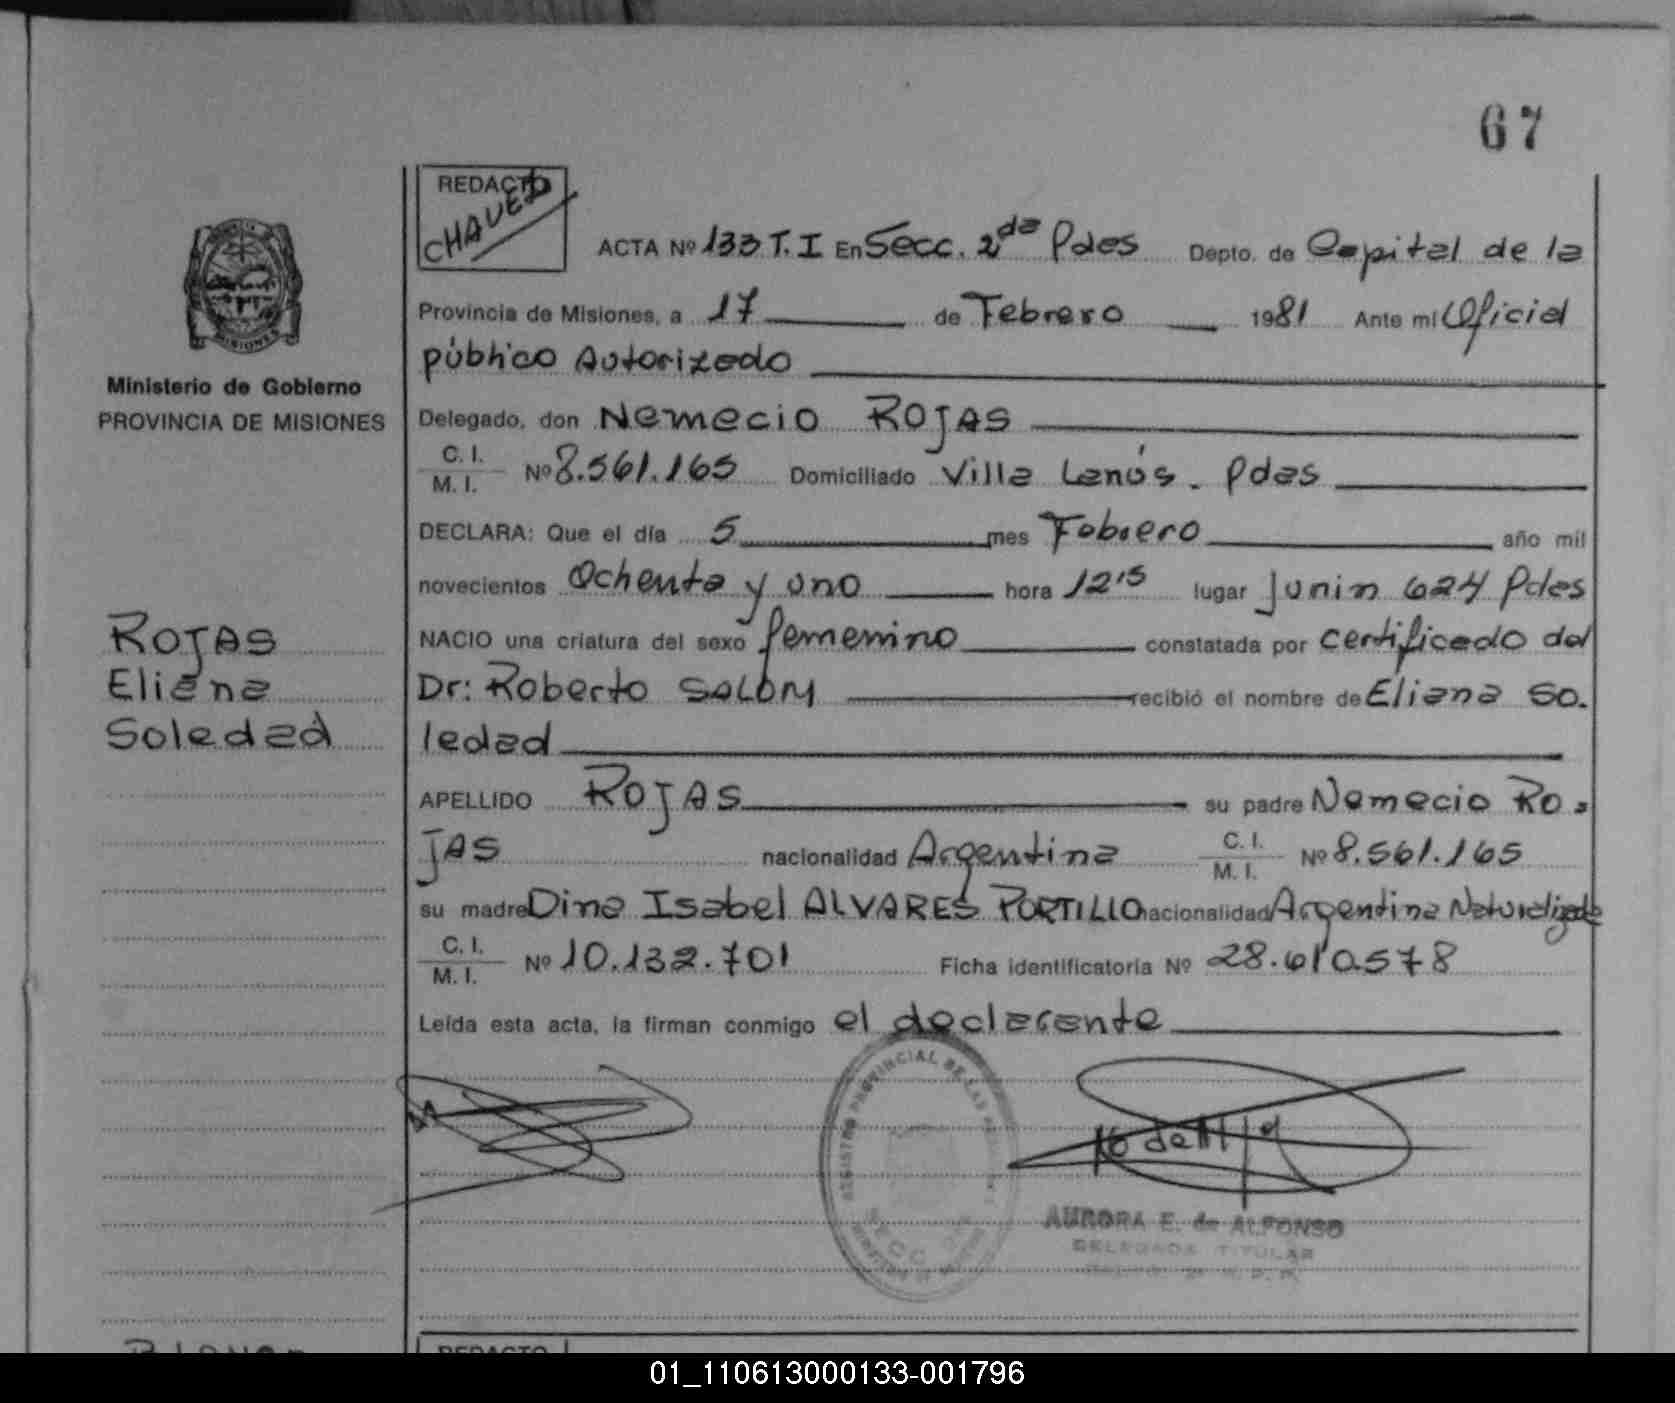 67
REDACTO
CHAVEZ
ACTA Nº 133 T. I En Secc. 2da Pdas Depto. de Capital de la
MISIONES
Provincia de Misiones, a 17 de Febrero 1981 Ante mi Oficial
público Autorizado
Ministerio de Gobierno
PROVINCIA DE MISIONES
Delegado, don Nemecio ROJAS
C. I.
M. I. Nº 8.561.165 Domiciliado Villa Lanús. Pdas
DECLARA: Que el día 5 mes Febrero año mil
novecientos Ochenta y uno hora 12'5 lugar Junin 624 Pdas
ROJAS
NACIO una criatura del sexo femenino constatada por certificado del
Eliana
Dr: Roberto SALOM recibió el nombre de Eliana So.
Soledad
ledad
APELLIDO ROJAS su padre Nemecio RO.
JAS nacionalidad Argentina C. I.
M. I. Nº 8.561.165
su madre Dina Isabel ALVARES PORTILLO nacionalidad Argentina Naturalizada
C. I.
M. I. Nº 10.132.701 Ficha identificatoria Nº 28.610.578
Leída esta acta, la firman conmigo el declarante
REGISTRO PROVINCIAL DE LAS
SECC.
AURORA E. de ALFONSO
DELEGADA TITULAR
REDACTO
01_110613000133-001796